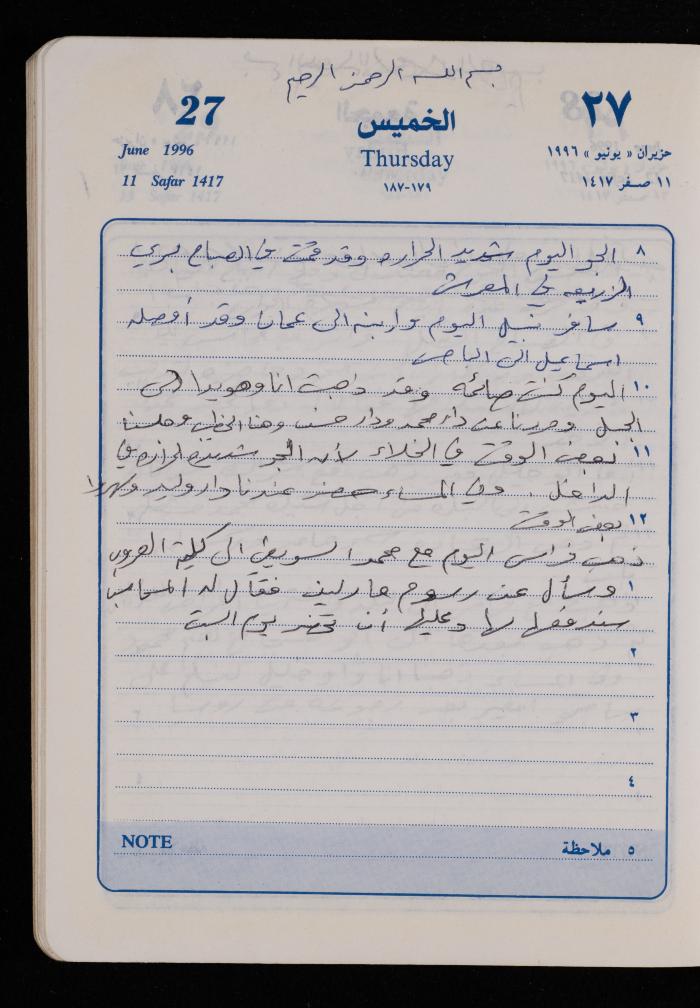 بسم الله الرحمن الرحيم
27 الخميس ٢٧
June 1996 Thursday حزيران « يونيو » ١٩٩٦
11 Safar 1417 ١٧٩-١٨٧ ١١ صفر ١٤١٧
٨ الجو اليوم شديد الحراره وقد قمت في الصباح بري
الزريعه في المعرش
٩ سافر نبيل اليوم وابنه الى عمان وقد أوصله
اسماعيل الى الباص
١٠ اليوم كنت صائمه وقد ذهبت انا وهويدا الى
الجبل ومررنا عن دار محمد ودار حسن وجلسنا
١١ بعض الوقت في الخلاء لأن الجو شديد الحراره في
الداخل . وفي المساء حضر عندنا دار وليد وسهروا
١٢ بعض الوقت
ذهب فراس اليوم مع محمد السويطي الى كلية العروب
١ وسأل عن رسوم مارلين فقال له المحاسب
سندفعها لها وعليها أن تحضر يوم السبت
٢
٣
٤
NOTE ٥ ملاحظة